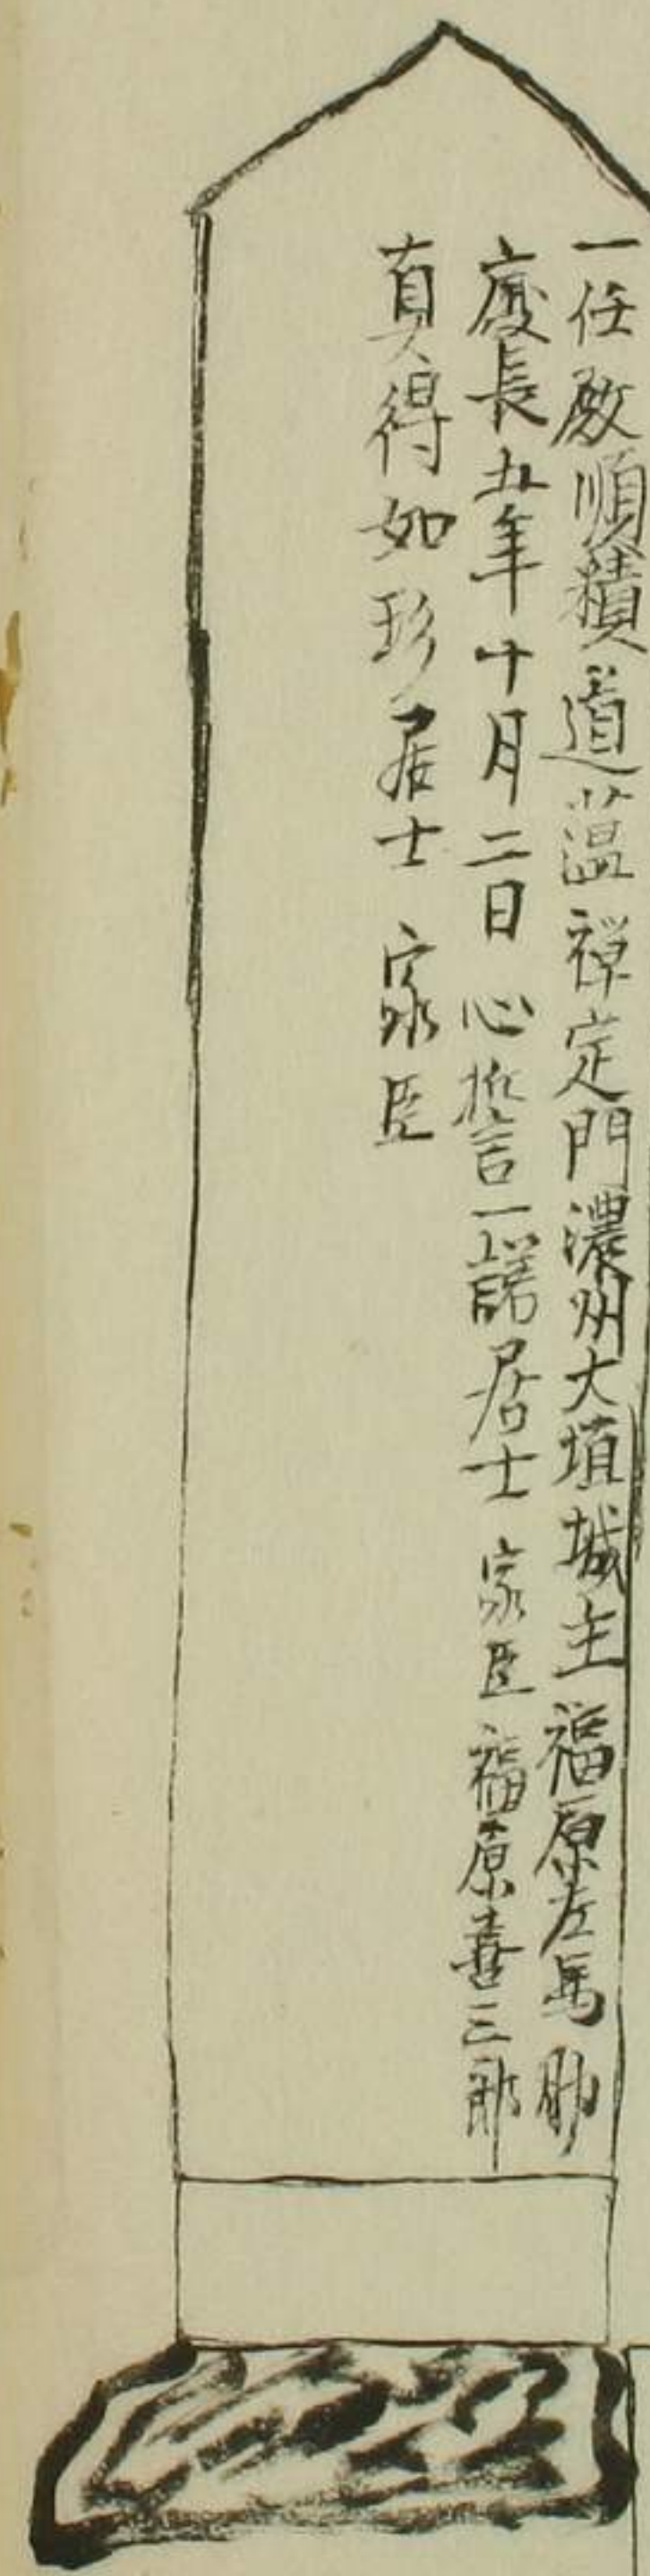 一任啟順積道薀禅定門濃州大垣城主福原左馬助
慶長五年十月二日 心誓一諾居士 家臣 福原喜三郎
真得如珍居士 家臣